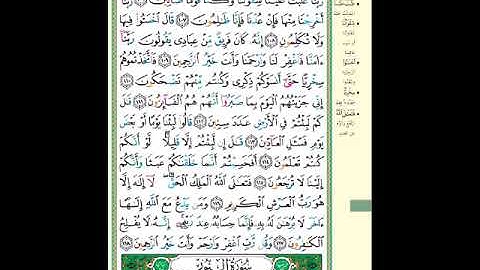 رَبَّنَا غَلَبَتْ عَلَيْنَا شِقْوَتُنَا وَكُنَّا قَوْمًا ضَآلِّينَ ۝ رَبَّنَآ
أَخْرِجْنَا مِنْهَا فَإِنْ عُدْنَا فَإِنَّا ظَٰلِمُونَ ۝ قَالَ ٱخْسَـُٔوا۟ فِيهَا
وَلَا تُكَلِّمُونِ ۝ إِنَّهُۥ كَانَ فَرِيقٌ مِّنْ عِبَادِى يَقُولُونَ رَبَّنَآ
ءَامَنَّا فَٱغْفِرْ لَنَا وَٱرْحَمْنَا وَأَنتَ خَيْرُ ٱلرَّٰحِمِينَ ۝ فَٱتَّخَذْتُمُوهُمْ
سِخْرِيًّا حَتَّىٰٓ أَنسَوْكُمْ ذِكْرِى وَكُنتُم مِّنْهُمْ تَضْحَكُونَ ۝
إِنِّى جَزَيْتُهُمُ ٱلْيَوْمَ بِمَا صَبَرُوٓا۟ أَنَّهُمْ هُمُ ٱلْفَآئِزُونَ ۝ قَٰلَ
كَمْ لَبِثْتُمْ فِى ٱلْأَرْضِ عَدَدَ سِنِينَ ۝ قَالُوا۟ لَبِثْنَا يَوْمًا أَوْ بَعْضَ
يَوْمٍ فَسْـَٔلِ ٱلْعَآدِّينَ ۝ قَٰلَ إِن لَّبِثْتُمْ إِلَّا قَلِيلًا ۖ لَّوْ أَنَّكُمْ
كُنتُمْ تَعْلَمُونَ ۝ أَفَحَسِبْتُمْ أَنَّمَا خَلَقْنَٰكُمْ عَبَثًا وَأَنَّكُمْ
إِلَيْنَا لَا تُرْجَعُونَ ۝ فَتَعَٰلَى ٱللَّهُ ٱلْمَلِكُ ٱلْحَقُّ ۖ لَآ إِلَٰهَ إِلَّا
هُوَ رَبُّ ٱلْعَرْشِ ٱلْكَرِيمِ ۝ وَمَن يَدْعُ مَعَ ٱللَّهِ إِلَٰهًا
ءَاخَرَ لَا بُرْهَٰنَ لَهُۥ بِهِۦ فَإِنَّمَا حِسَابُهُۥ عِندَ رَبِّهِۦٓ ۚ إِنَّهُۥ لَا يُفْلِحُ
ٱلْكَٰفِرُونَ ۝ وَقُل رَّبِّ ٱغْفِرْ وَٱرْحَمْ وَأَنتَ خَيْرُ ٱلرَّٰحِمِينَ ۝
سُورَةُ النُّورِ